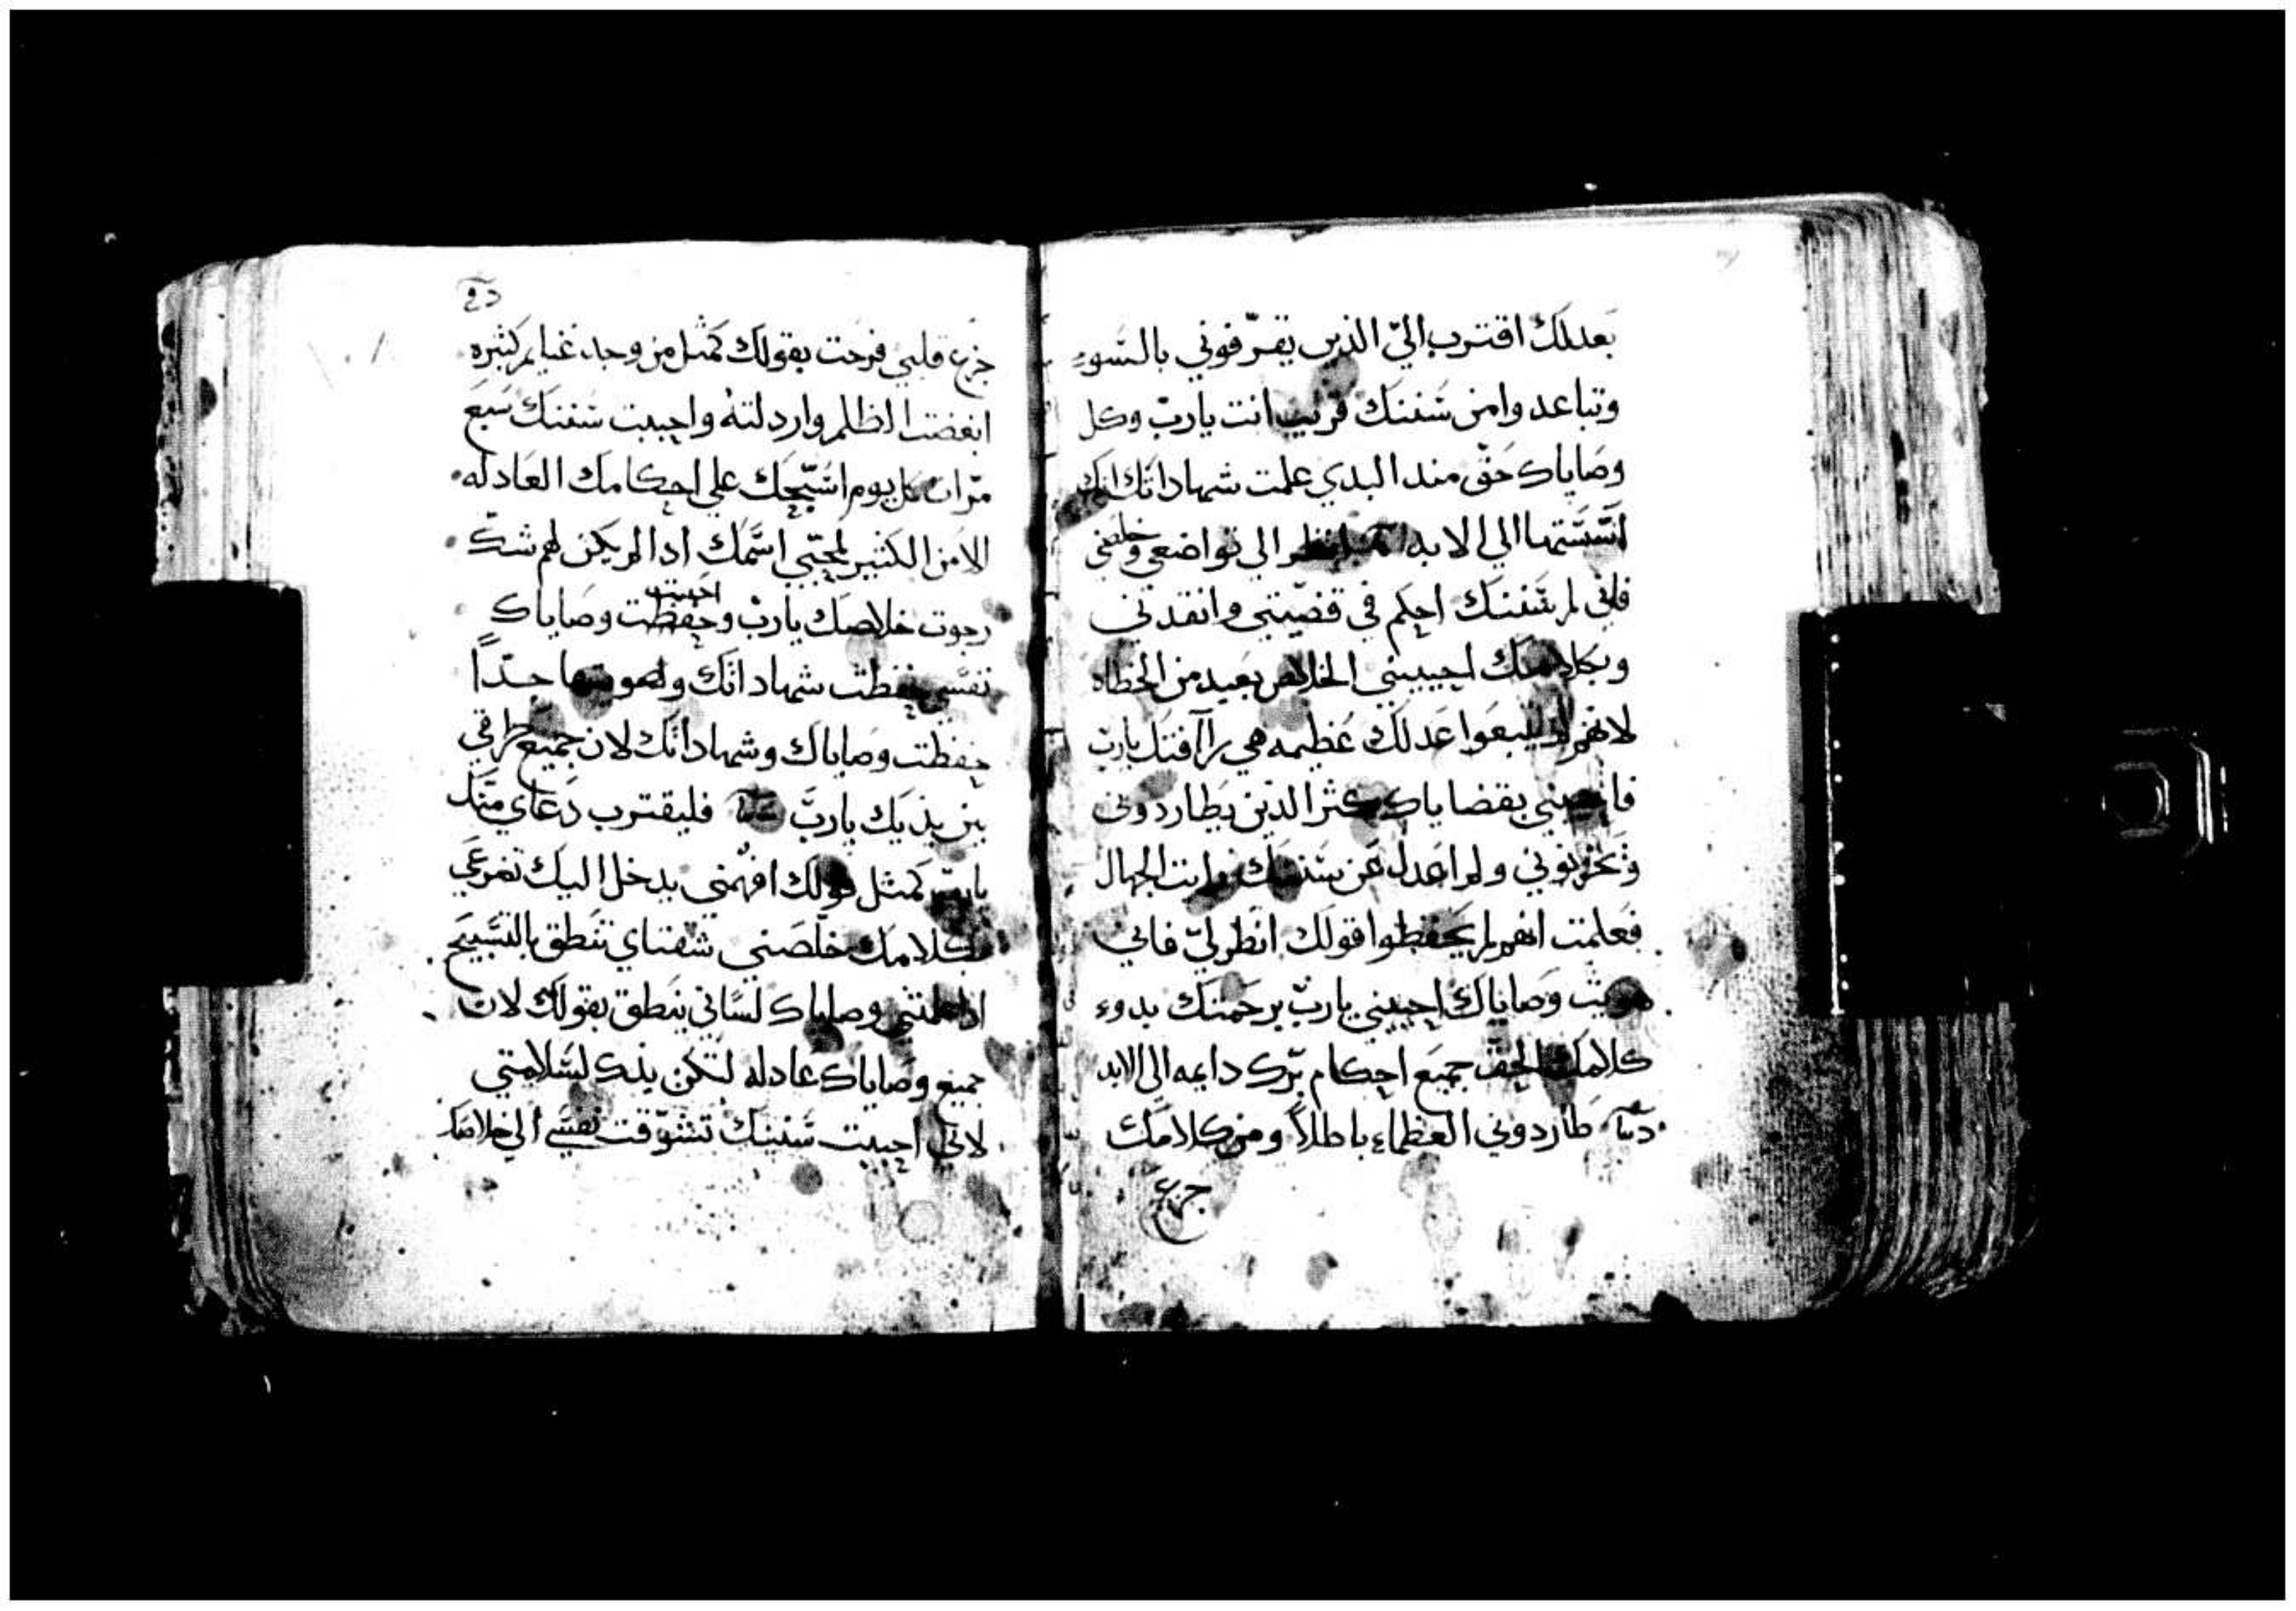 بعدلك اقترب اليّ الذين يقرّفوني بالسّوء
وتباعدوا من سَننك قريب انت يا ربّ وكل
وصَاياك حَقّ مند البدي علمت شهاداتك انك
اسّستها الي الابد انظر الي تواضعي وخلصني
فاني لم سَننك احكم في قضيّتي وانقدني
وبكلامك احييني الخلاص بَعيد من الخطاه
لانهم لم يتبعَوا عَدلك عَظيمه هي راآفتك يا ربّ
بقضاياك كثر الدين يَطاردوني
ويحزنوني ولم اعَدل عَن رايت الجهال
فعَلمت انهم لم يحَفظوا قولك انظر ليّ فاني
هويت وَصاياك احييني يا ربّ برحَمتك بدوء
كلامك الحقّ جميَع احكام برّك دايمه الي الابد
طاردوني العظماء باطلاً ومن كلامَك
جزع
جزع قلبي فرحَت بقولك كمَثل من وجد غنايم كثيره
ابغضت الظلم واردلته واحببت سَننك سَبع
مرّات كل يوم اسَبّحك علي احكامك العَادله
الامن الكثير لمحبّي اسَمك ادا لم يكن لهم شكّ
رجوت خلاصك يا ربّ وحفظت وصاياك
احببت
نفسَي حفظت شهاداتك جدّاً
حفظت وصَاياك وشهاداتك لان جميَع طرقي
بين يديك يا ربّ فليقترب دعَاي مَتك
يا ربّ كمثل قولك افهمني يدخل اليك تضرعَي
بكلامك خلّصَني شفتاي تنطق بالتسَبيح
وصاياك لسَاني ينَطق بقولك لان
جميع وصَاياك عَادله لتكن يدك لسَلامتي
لاني احببت سَننك تشوّقت نفسَي الي خلاصَك